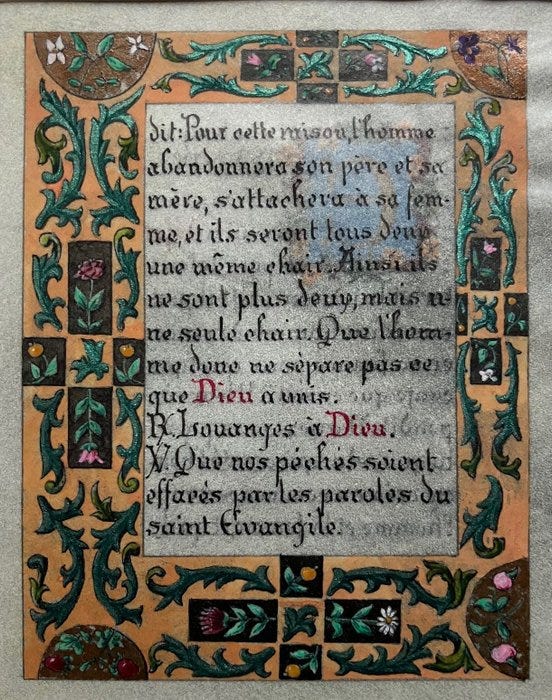 dit: Pour cette raison, l'homme
abandonnera son père et sa
mère, s'attachera à sa fem-
me, et ils seront tous deux
une même chair. Ainsi ils
ne sont plus deux, mais u-
ne seule chair. Que l'hom-
me donc ne sépare pas ce
que Dieu a unis.
R. Louanges à Dieu.
V. Que nos péchés soient
effacés par les paroles du
saint Evangile.